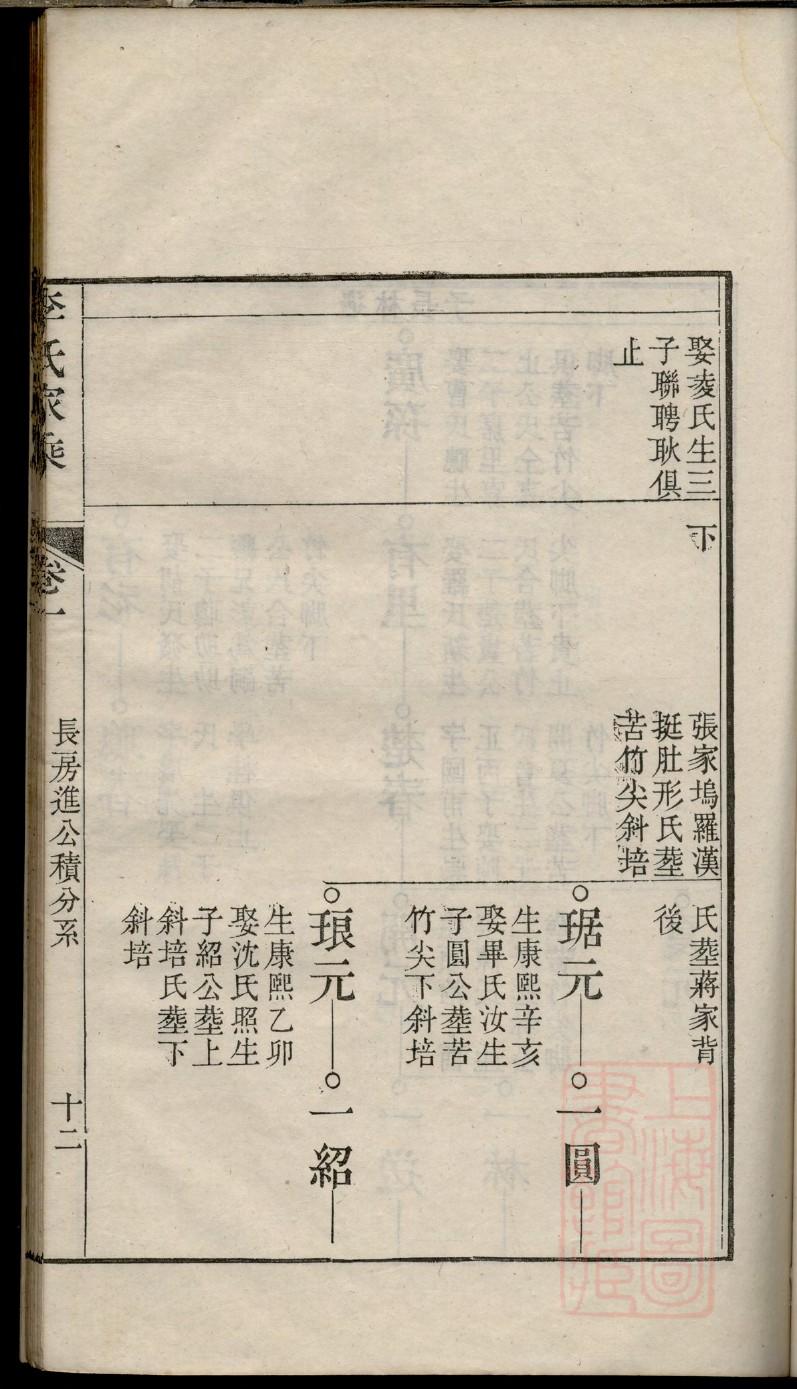 娶夌氏生三
子聯聘耿俱
止
下
張家塢羅漢
挺肚形氏塟
苦竹尖斜培
氏塟蔣家背
後
琚元
一圓
生康熙辛亥
娶畢氏汝生
子圓公塟苦
竹尖下斜培
琅元
一紹
生康熙乙卯
娶沈氏照生
子紹公塟上
斜培氏塟下
斜培
李氏家乘
卷一
長房進公積分系
十二
上海圖
書館藏